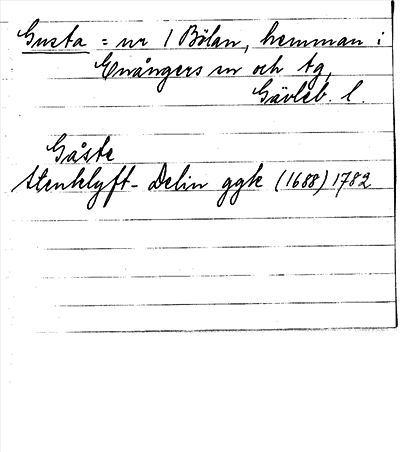 Gusta = nr 1 Bölan, hemman i
Enångers sn och tg,
Gävleb. l.
Gåste
Stenklyft- Delin ggk (1688) 1782